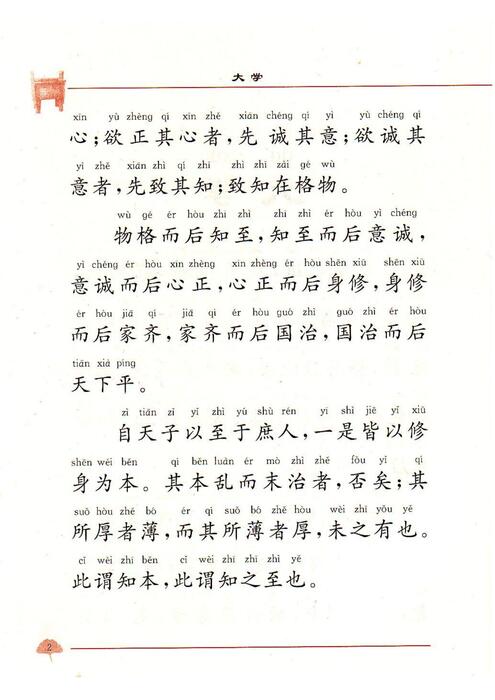 大学
xīn yù zhèng qí xīn zhě xiān chéng qí yì yù chéng qí
心；欲正其心者，先诚其意；欲诚其
yì zhě xiān zhì qí zhī zhì zhī zài gé wù
意者，先致其知；致知在格物。
wù gé ér hòu zhī zhì zhī zhì ér hòu yì chéng
物格而后知至，知至而后意诚，
yì chéng ér hòu xīn zhèng xīn zhèng ér hòu shēn xiū shēn xiū
意诚而后心正，心正而后身修，身修
ér hòu jiā qí jiā qí ér hòu guó zhì guó zhì ér hòu
而后家齐，家齐而后国治，国治而后
tiān xià píng
天下平。
zì tiān zǐ yǐ zhì yú shù rén yī shì jiē yǐ xiū
自天子以至于庶人，一是皆以修
shēn wéi běn qí běn luàn ér mò zhì zhě fǒu yǐ qí
身为本。其本乱而末治者，否矣；其
suǒ hòu zhě bó ér qí suǒ bó zhě hòu wèi zhī yǒu yě
所厚者薄，而其所薄者厚，未之有也。
cǐ wèi zhī běn cǐ wèi zhī zhī zhì yě
此谓知本，此谓知之至也。
2